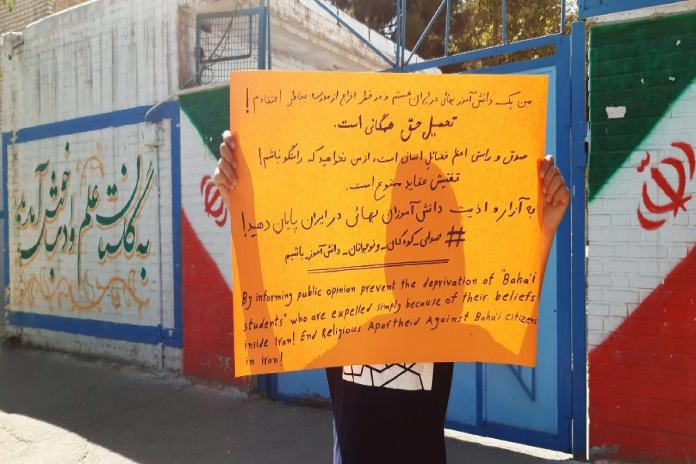 من یک دانش آموز بهائی در ایران هستم و در خطر اخراج از مدرسه بخاطر اعتقادم!
تحصیل حق همگانی است.
صدق و راستی اعظم فضائل انسان است، از من نخواهید که راستگو نباشم!
تفتیش عقاید ممنوع است.
به آزار و اذیت دانش آموزان بهائی در ایران پایان دهید!
#صدای_کودکان_و_نوجوانان_دانش آموز باشیم
By informing public opinion prevent the deprivation of "Baha'i
students" who are expelled simply because of their beliefs
inside Iran! End Religious Apartheid Against Baha'i citizens
in Iran!
به گلستان علم و ادب خوش آمدید